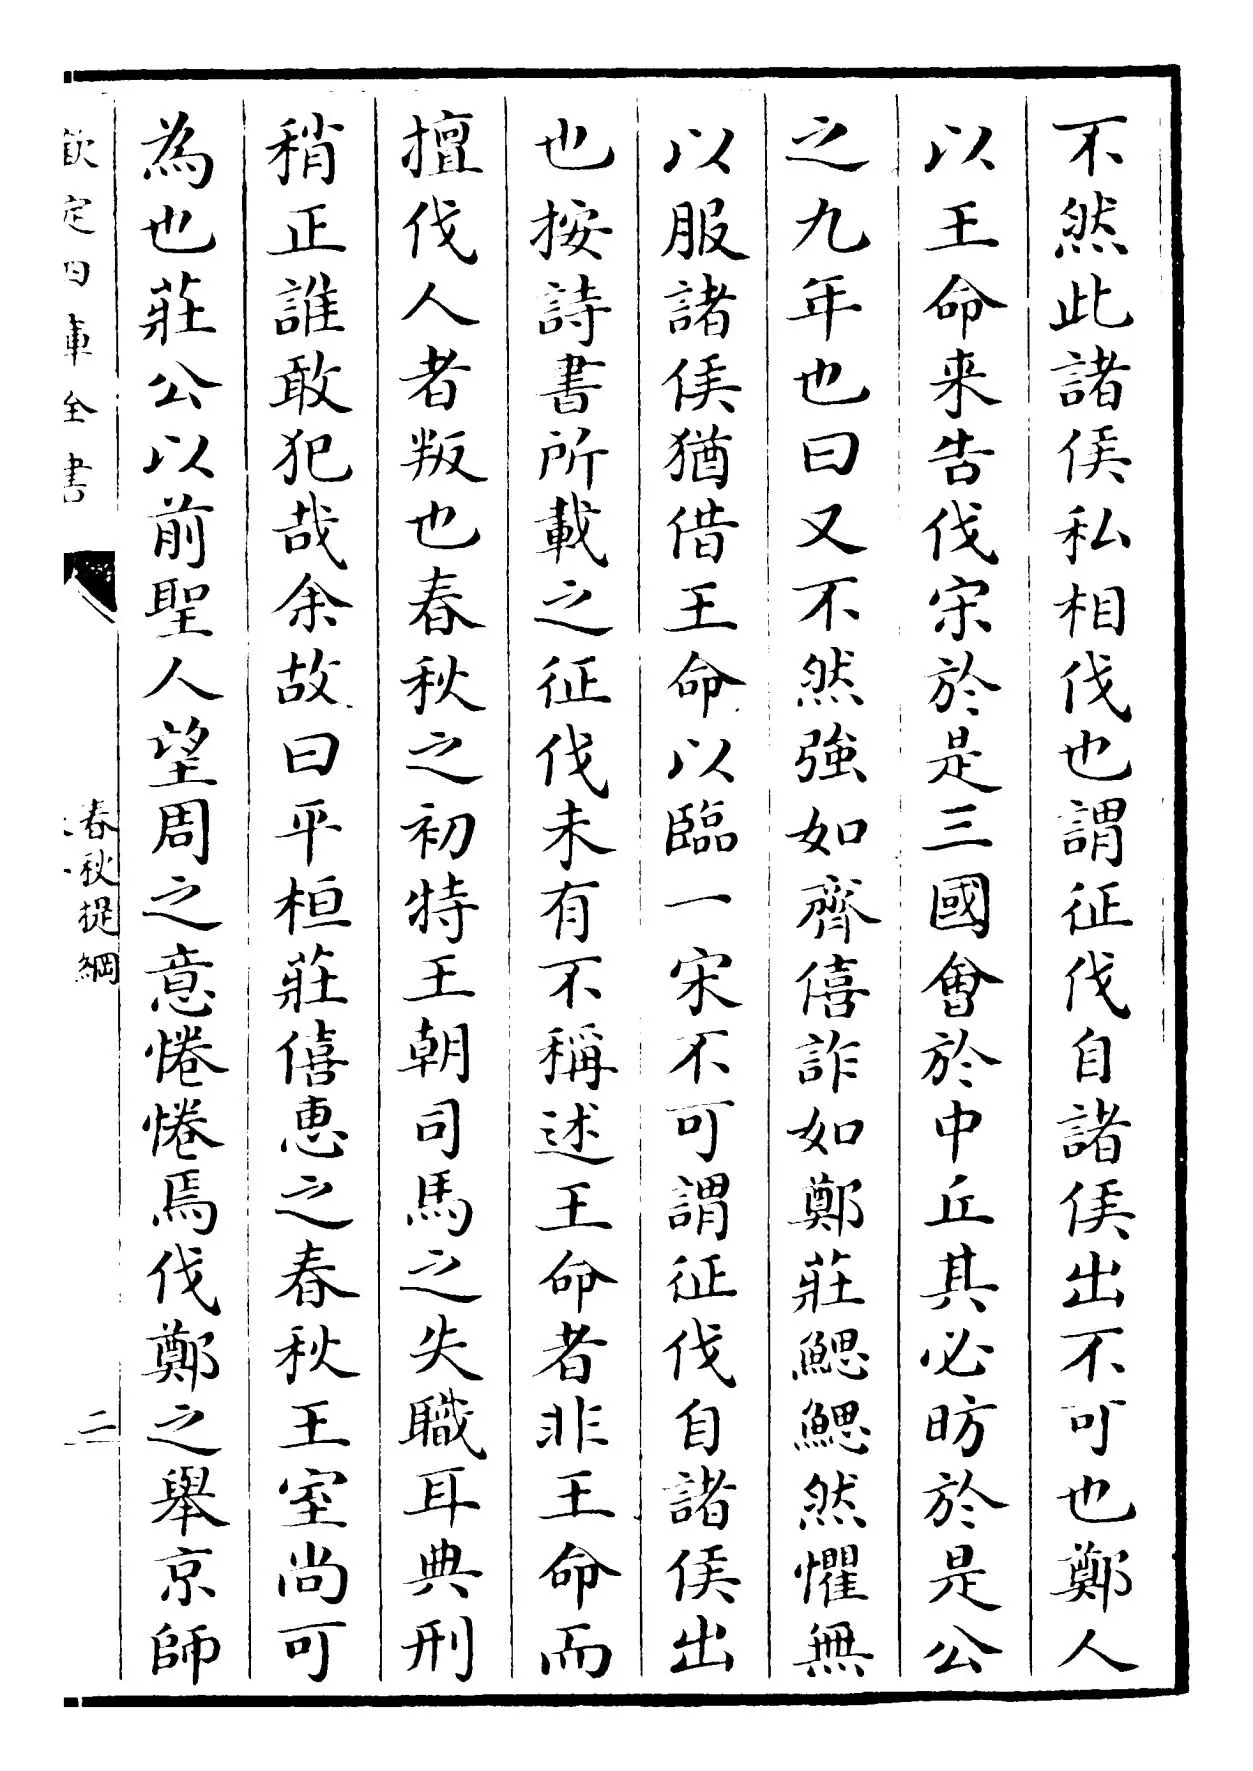 不然此諸侯私相伐也謂征伐自諸侯出不可也鄭人
以王命来告伐宋於是三國會於中丘其必昉於是公
之九年也曰又不然強如齊僖詐如鄭莊鰓鰓然懼無
以服諸侯猶借王命以臨一宋不可謂征伐自諸侯出
也按詩書所載之征伐未有不稱述王命者非王命而
擅伐人者叛也春秋之初特王朝司馬之失職耳典刑
稍正誰敢犯哉余故曰平桓莊僖惠之春秋王室尚可
為也莊公以前聖人望周之意惓惓焉伐鄭之舉京師
欽定四庫全書
春秋提綱
二